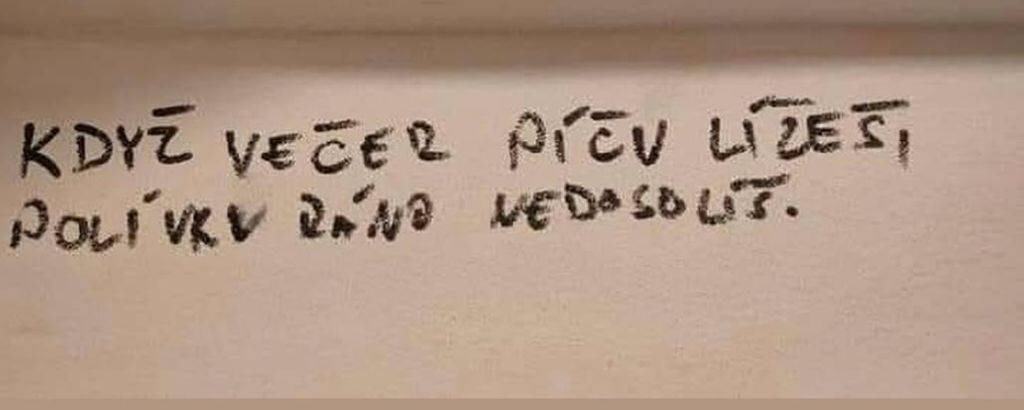 KDYŽ VEČER PÍČU LÍŽEŠ,
POLÍVKU RÁNO NEDOSOLÍŠ.